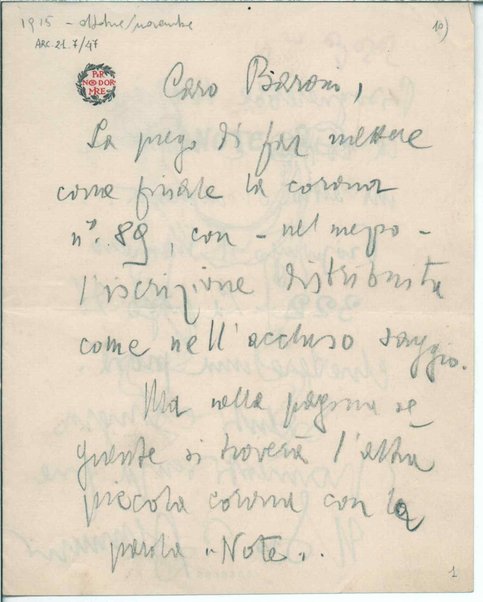 1915 - ottobre/novembre
10)
ARC.21.7/47
PER
NON DOR
MIRE
Caro Baroni,
La prego di far mettere
come finale la corona
n° 89, con - nel mezzo -
l'iscrizione distribuita
come nell'accluso saggio.
Ma nella pagina se-
guente si troverà l'altra
piccola corona con la
parola "Note".
1